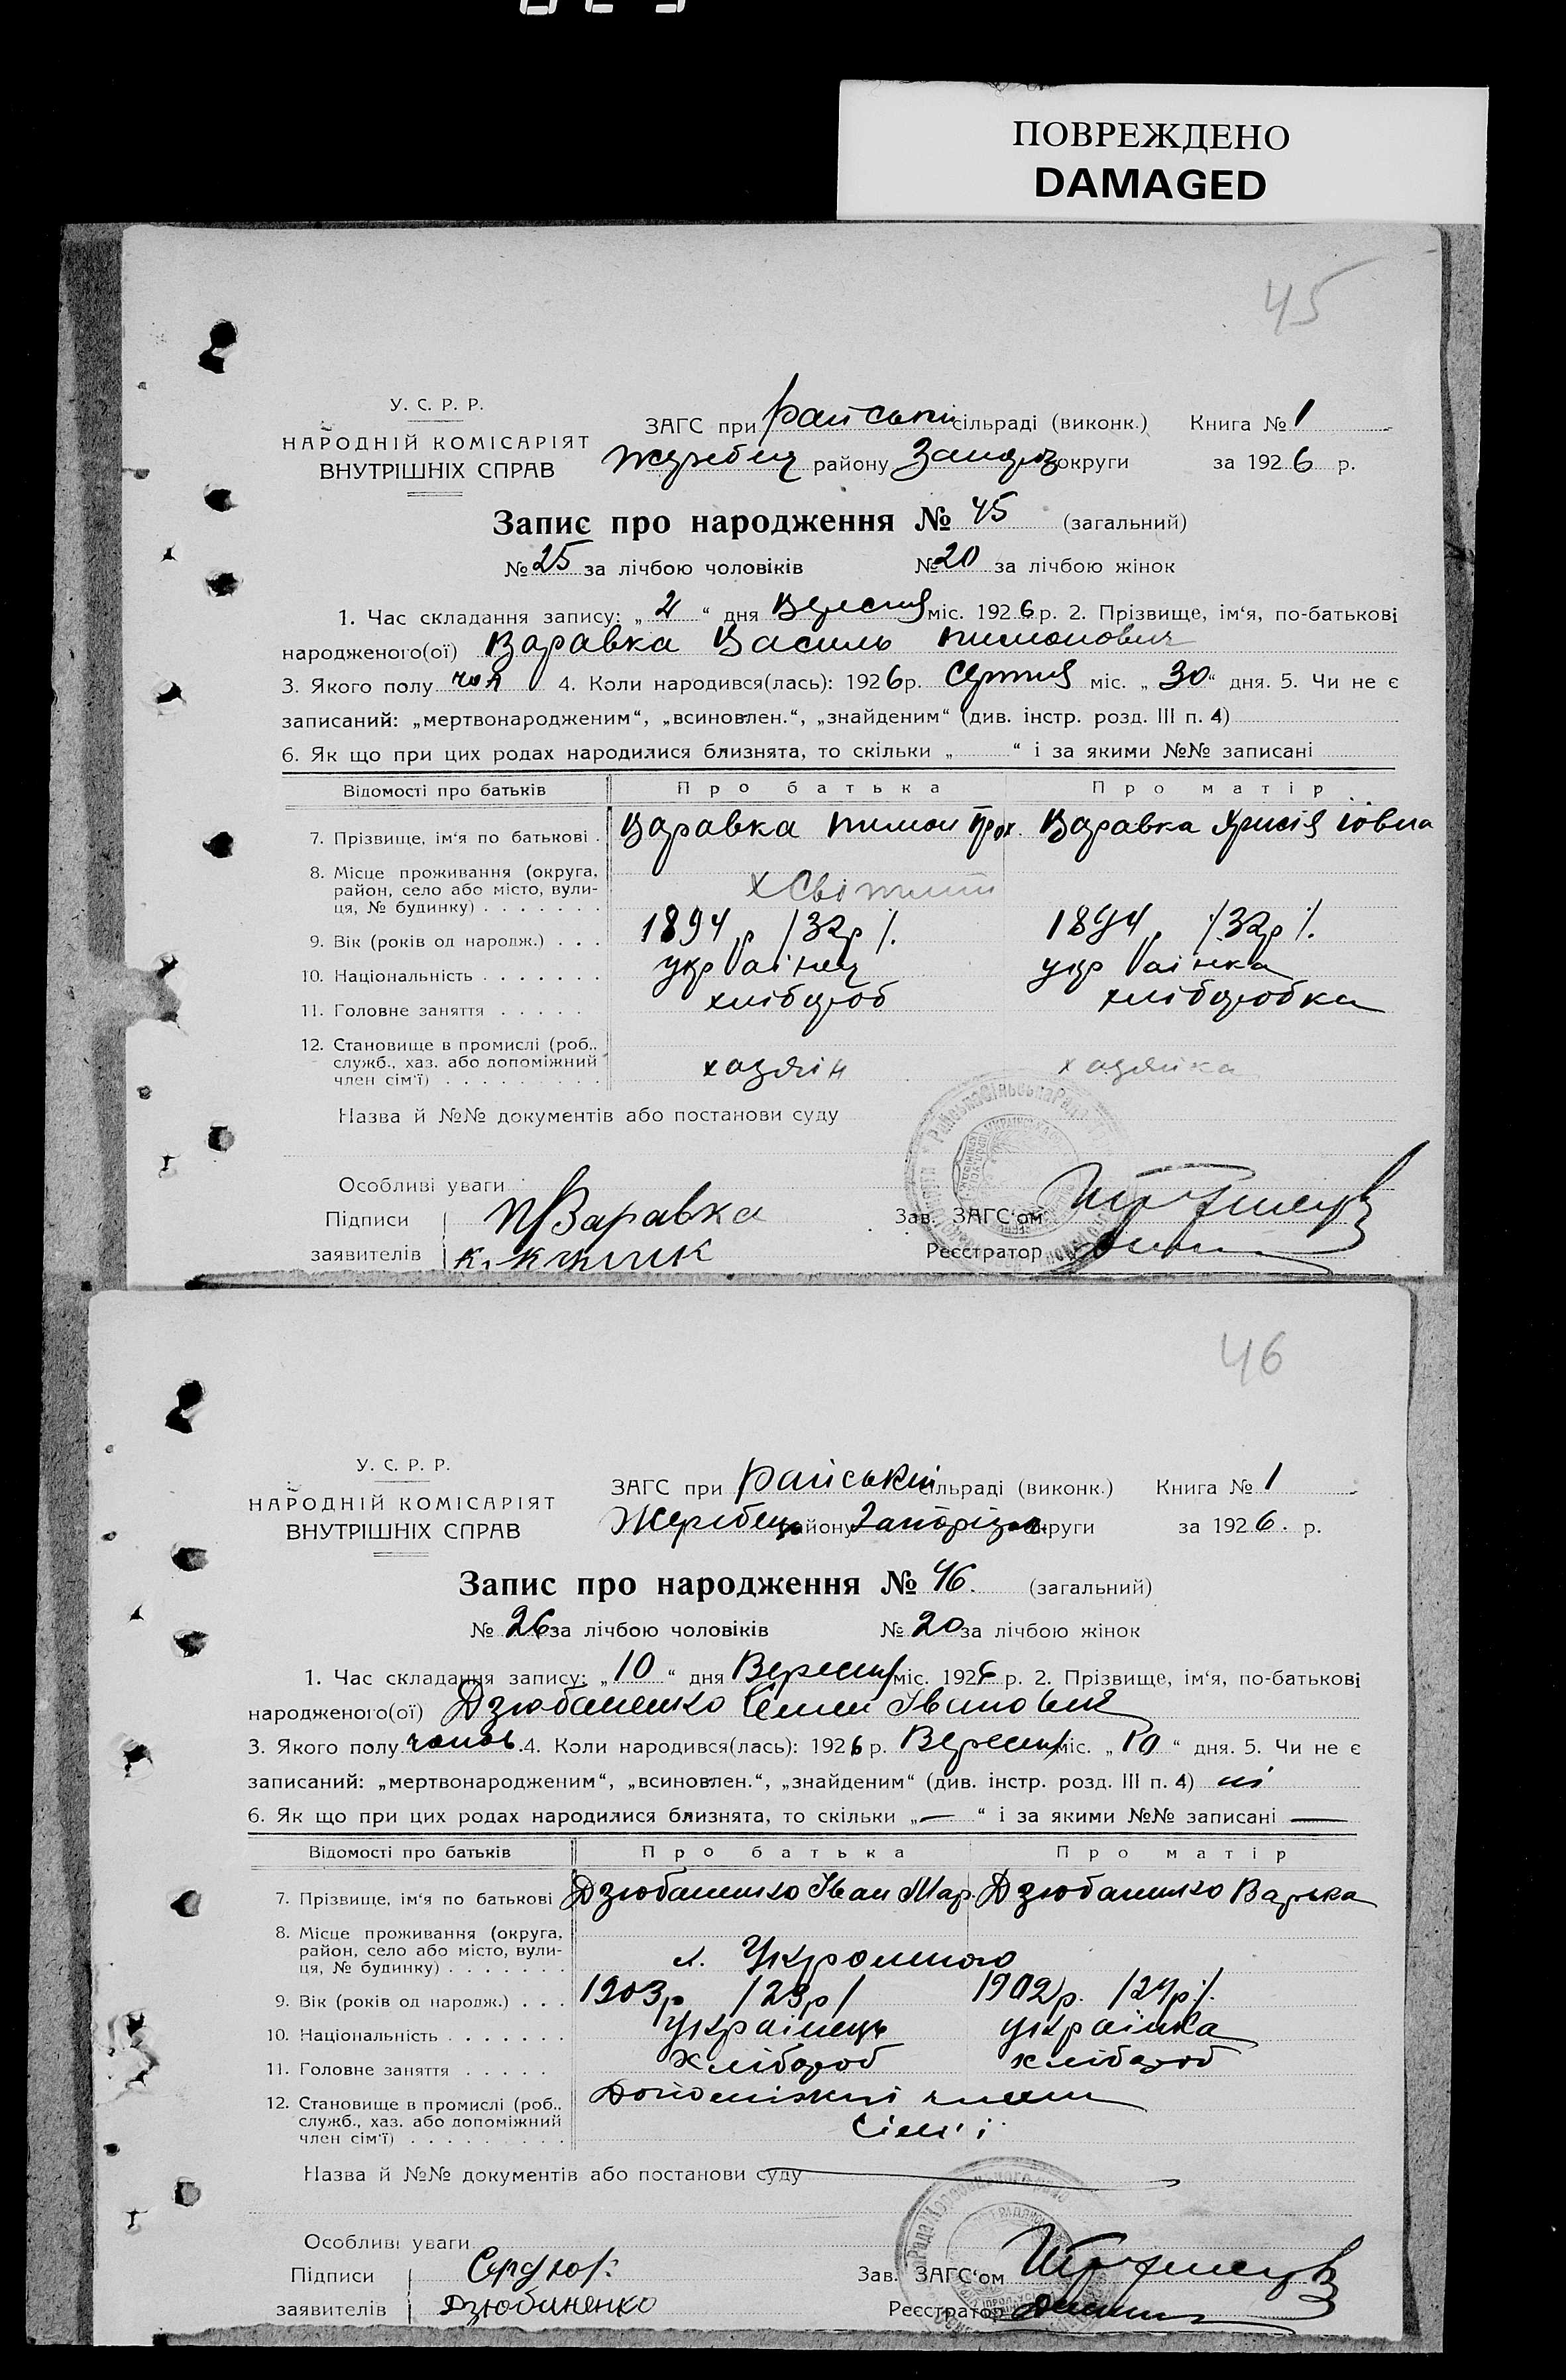 ПОВРЕЖДЕНО
DAMAGED
45
У. С. Р. Р.
НАРОДНІЙ КОМІСАРІЯТ
ВНУТРІШНІХ СПРАВ
ЗАГС при Райській сільраді (виконк.) Книга № 1
району округи за 1926 р.
Запис про народження № 45 (загальний)
№ 25 за лічбою чоловіків № 20 за лічбою жінок
1. Час складання запису: „ 2 “ дня Вересня міс. 1926 р. 2. Прізвище, ім‘я, по-батькові
народженого(ої) Варавка Василь Пимонович
3. Якого полу чол 4. Коли народився(лась): 1926 р. Серпня міс. „ 30 “ дня. 5. Чи не є
записаний: „мертвонародженим“, „всиновлен.“, „знайденим“ (див. інстр. розд. III п. 4)
6. Як що при цих родах народилися близнята, то скільки „ “ і за якими №№ записані
Відомості про батьків Про батька Про матір
7. Прізвище, ім‘я по батькові . Варавка Пимон Прох Варавка Іовна
8. Місце проживання (округа,
район, село або місто, вули-
ця, № будинку)
9. Вік (років од народж.) . . . 1894 р /32р/. 1894 р /32р/.
10. Національність украінец украінка
11. Головне заняття хлібороб хліборобка
12. Становище в промислі (роб.,
служб., хаз. або допоміжний
член сім‘ї) хазяін хазяйка
Назва й №№ документів або постанови суду
Особливі уваги
Підписи
заявителів
П Варавка
Зав. ЗАГС‘ом
Реєстратор
46
У. С. Р. Р.
НАРОДНІЙ КОМІСАРІЯТ
ВНУТРІШНІХ СПРАВ
ЗАГС при Райській сільраді (виконк.) Книга № 1
Жеребец району Запоріз. округи за 1926. р.
Запис про народження № 46. (загальний)
№ 26 за лічбою чоловіків № 20 за лічбою жінок
1. Час складання запису: „ 10 “ дня Вересня міс. 1926 р. 2. Прізвище, ім‘я, по-батькові
народженого(ої) Дзюбаненко Семен Іванович
3. Якого полу чолов. 4. Коли народився(лась): 1926 р. Вересня міс. „ 10 “ дня. 5. Чи не є
записаний: „мертвонародженим“, „всиновлен.“, „знайденим“ (див. інстр. розд. III п. 4) ні
6. Як що при цих родах народилися близнята, то скільки „ — “ і за якими №№ записані —
Відомості про батьків Про батька Про матір
7. Прізвище, ім‘я по батькові Дзюбаненко Іван Мар. Дзюбаненко Варька
8. Місце проживання (округа,
район, село або місто, вули-
ця, № будинку) с. Укромного
9. Вік (років од народж.) . . . 1903р /23р/ 1902р. /24р/.
10. Національність Украінець украінка
11. Головне заняття хлібороб хлібороб
12. Становище в промислі (роб.,
служб., хаз. або допоміжний
член сім‘ї) Допоміжний член
сім'ї
Назва й №№ документів або постанови суду
Особливі уваги
Підписи
заявителів
Дзюбиненко
Зав. ЗАГС‘ом
Реєстратор